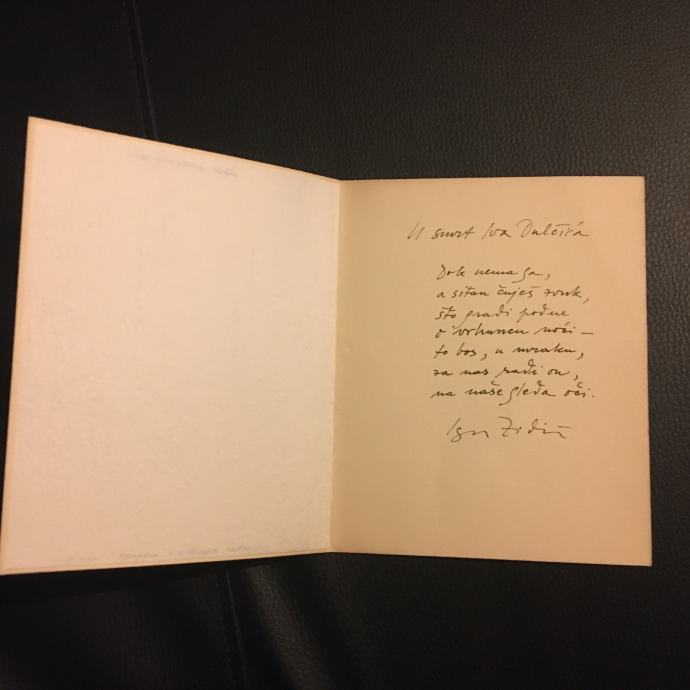 U smrt Iva Dulčića
Dok nema ga,
a sitan čuješ zvuk,
što gradi podne
o vrhuncu noći –
to bos, u mraku,
za nas radi on,
na naše gleda oči.
Igor Zidić